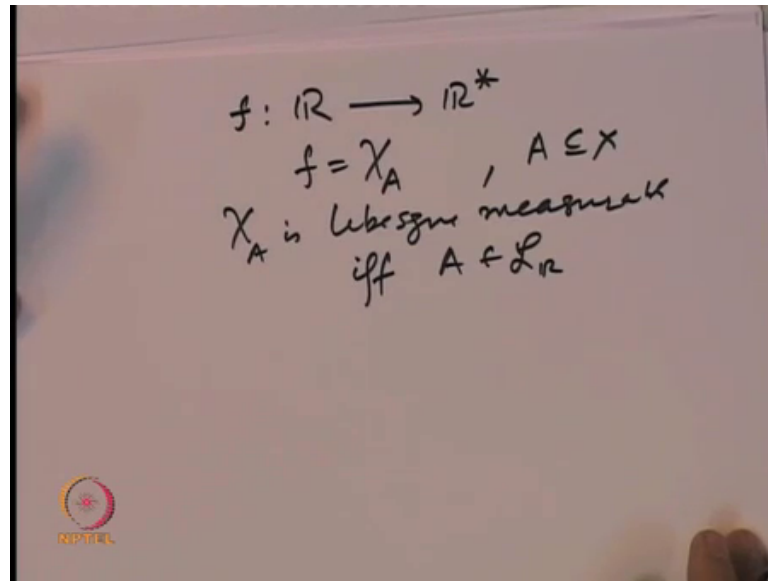 f : ℝ ⟶ ℝ*
f = χ_A , A ⊆ X
χ_A is Lebesgue measurable
iff A ∈ 𝓛_ℝ
NPTEL